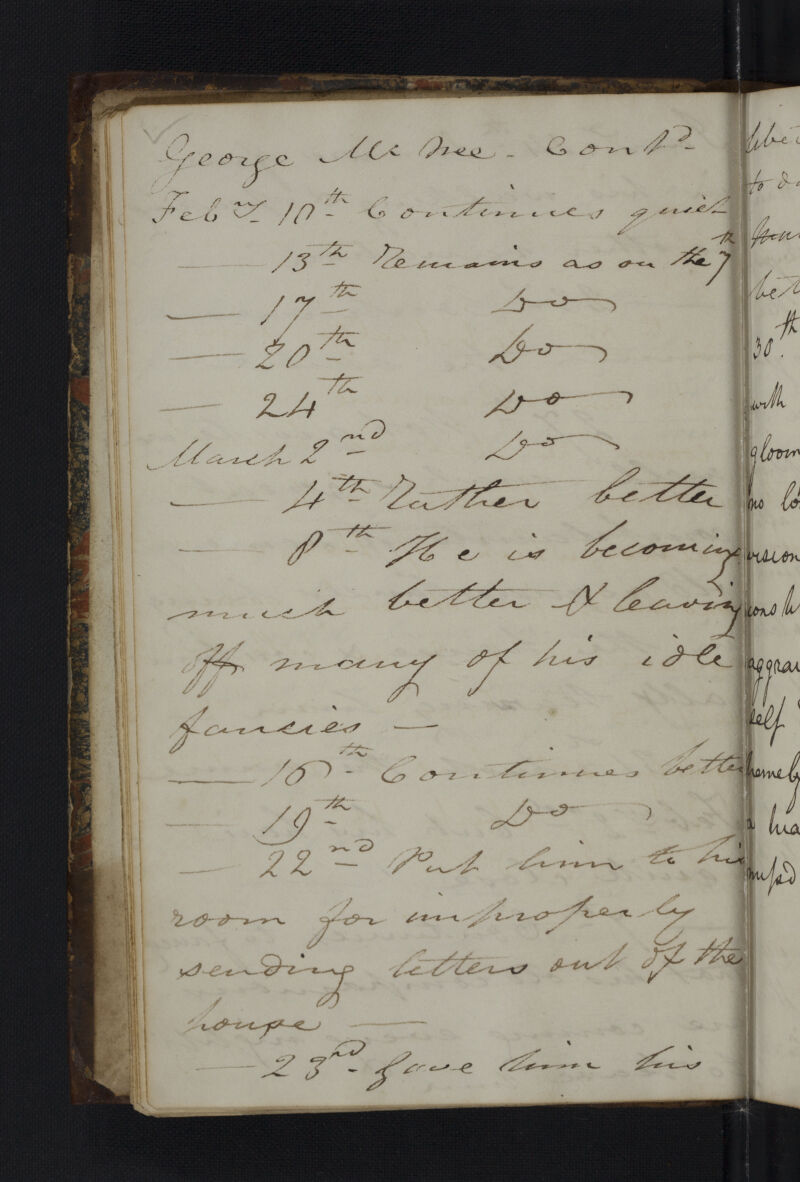 George Mc Nee - Contd -
Feby 10th Continues quiet
— 13th Remains as on the 7th
— 17th Do
— 20th Do
— 24th Do
March 2nd Do
— 4th Rather better
— 8th He is becoming
much better & leaving
off many of his idle
fancies —
— 16th - Continues better
— 19th Do
— 22nd Put him to his
room for improperly
sending letters out of the
house —
— 23rd - Gave him his
to
30th.
with
no
self
a